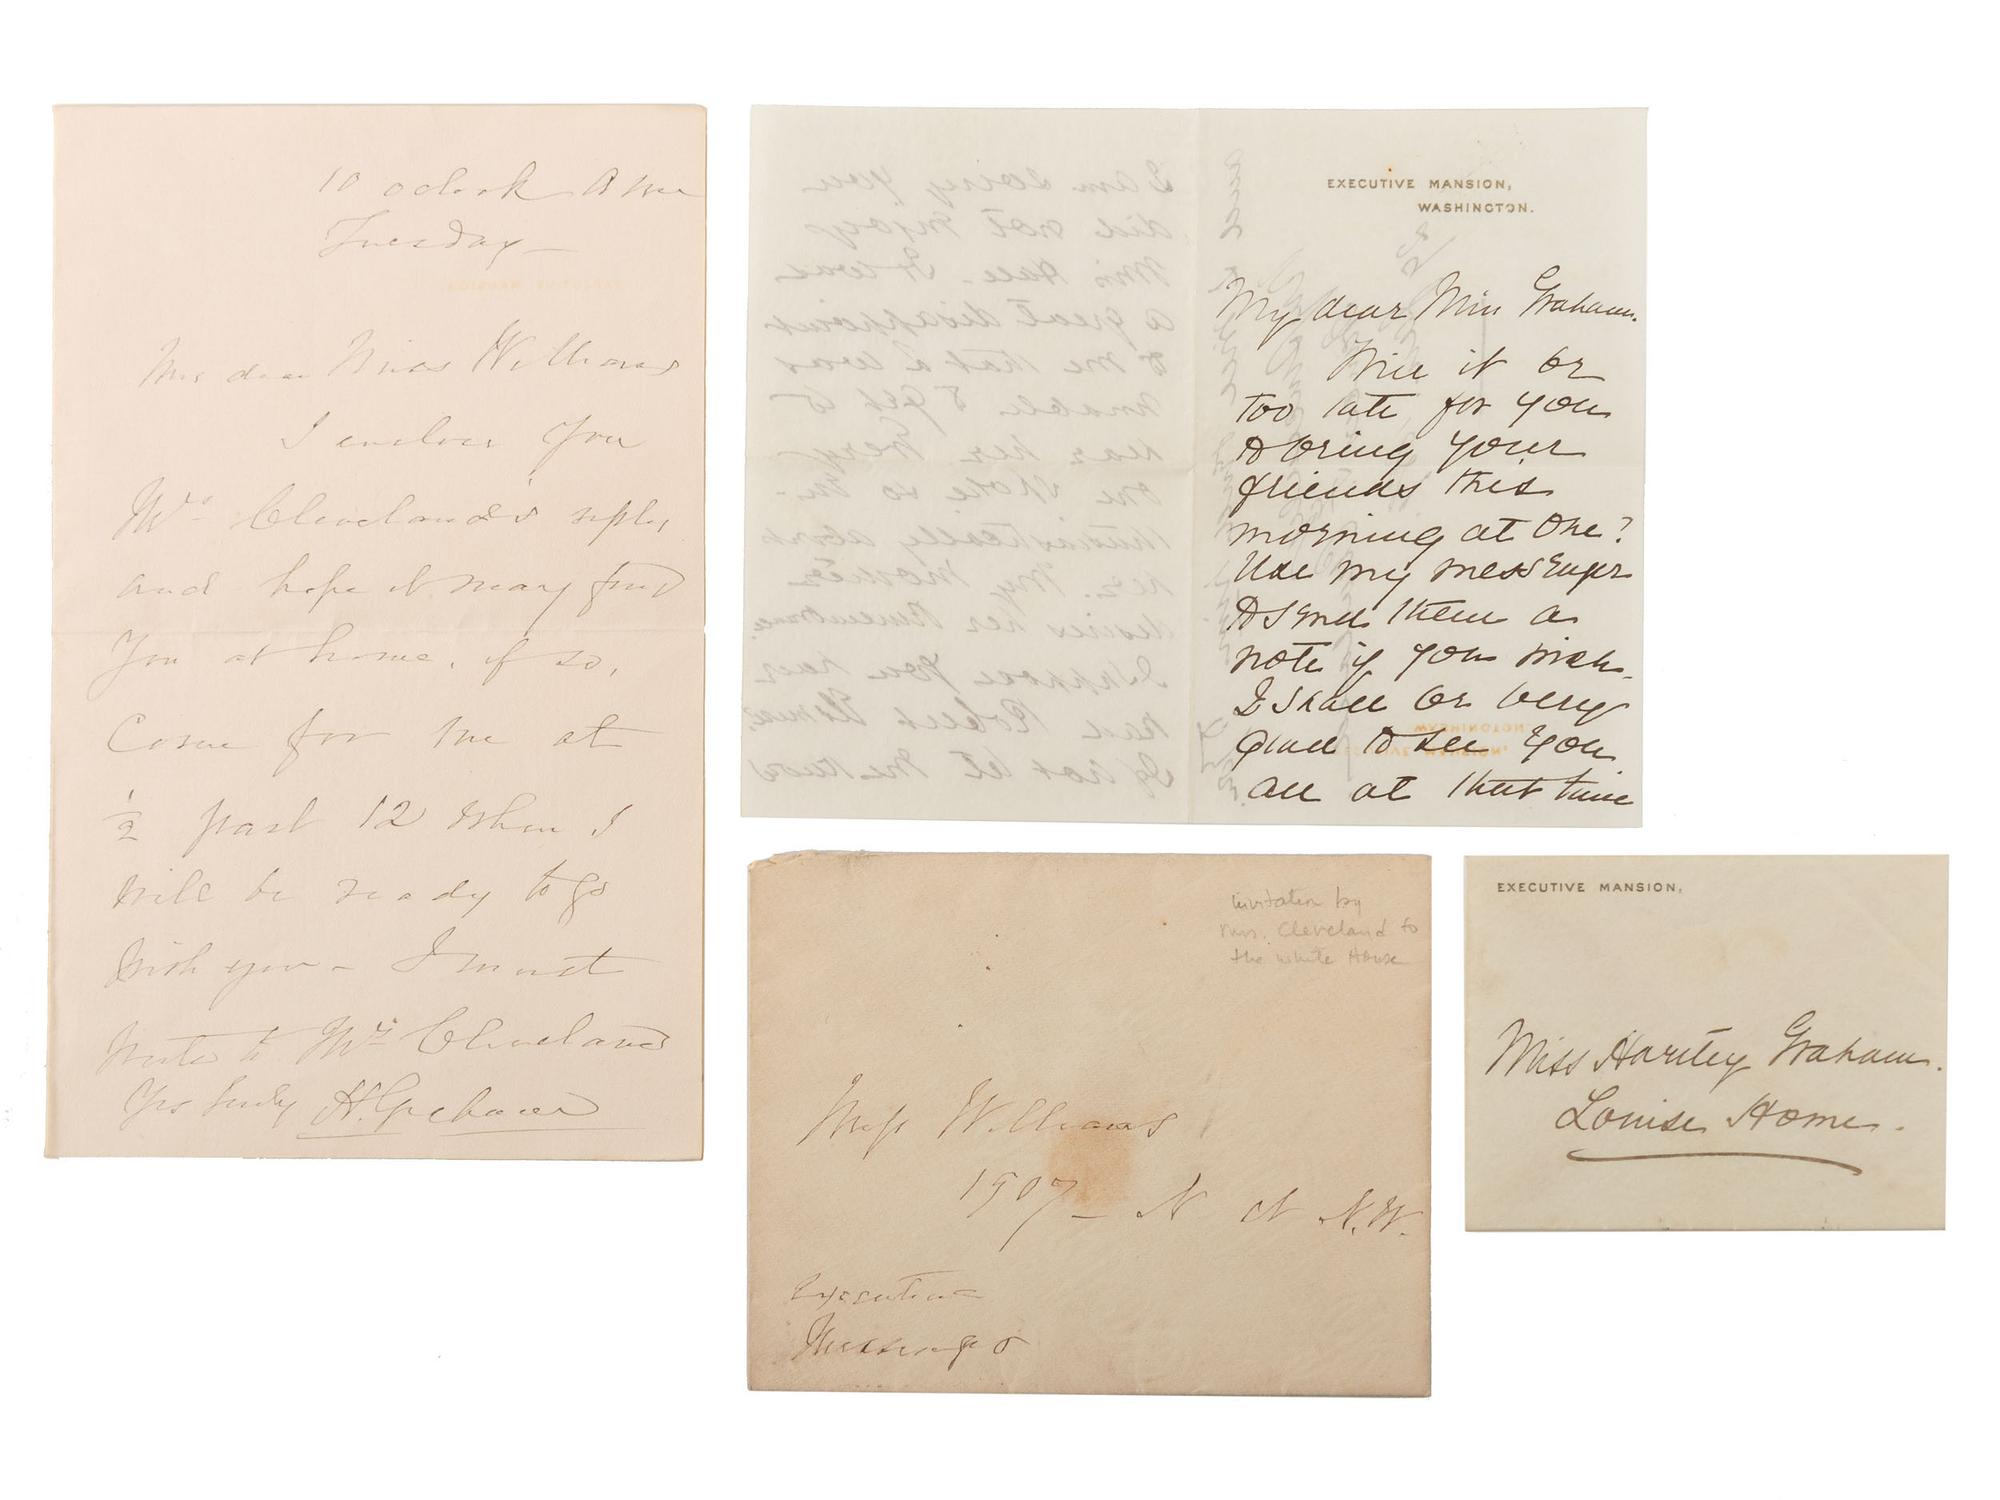 10 oclock A M
Tuesday—
My dear Miss Williams
I enclose you
Mrs. Cleveland's reply
and hope it may find
you at home, if so,
Come for me at
½ past 12 when I
will be ready to go
with you – I must
write to Mrs Cleveland
Yrs truly H. Graham
EXECUTIVE MANSION,
WASHINGTON.
My dear Miss Graham.
Will it be
too late for you
to bring your
friends this
morning at one?
Use my messenger
to send them a
note if you wish.
I shall be very
glad to see you
all at that time
I am sorry you
did not enjoy
Miss It was
a great disappoint
to me that I was
unable to get to
hear her. Every
one spoke so en-
thusiastically about
her. My mother
desires her remembrance.
I suppose you have
had Robert
If not let me know
WASHINGTON
EXECUTIVE MANSION,
invitation by
Mrs. Cleveland to
the White House
Miss Williams
1907– N St N.W.
Executive
Messenger
EXECUTIVE MANSION,
Miss Hartley Graham.
Louise Home.